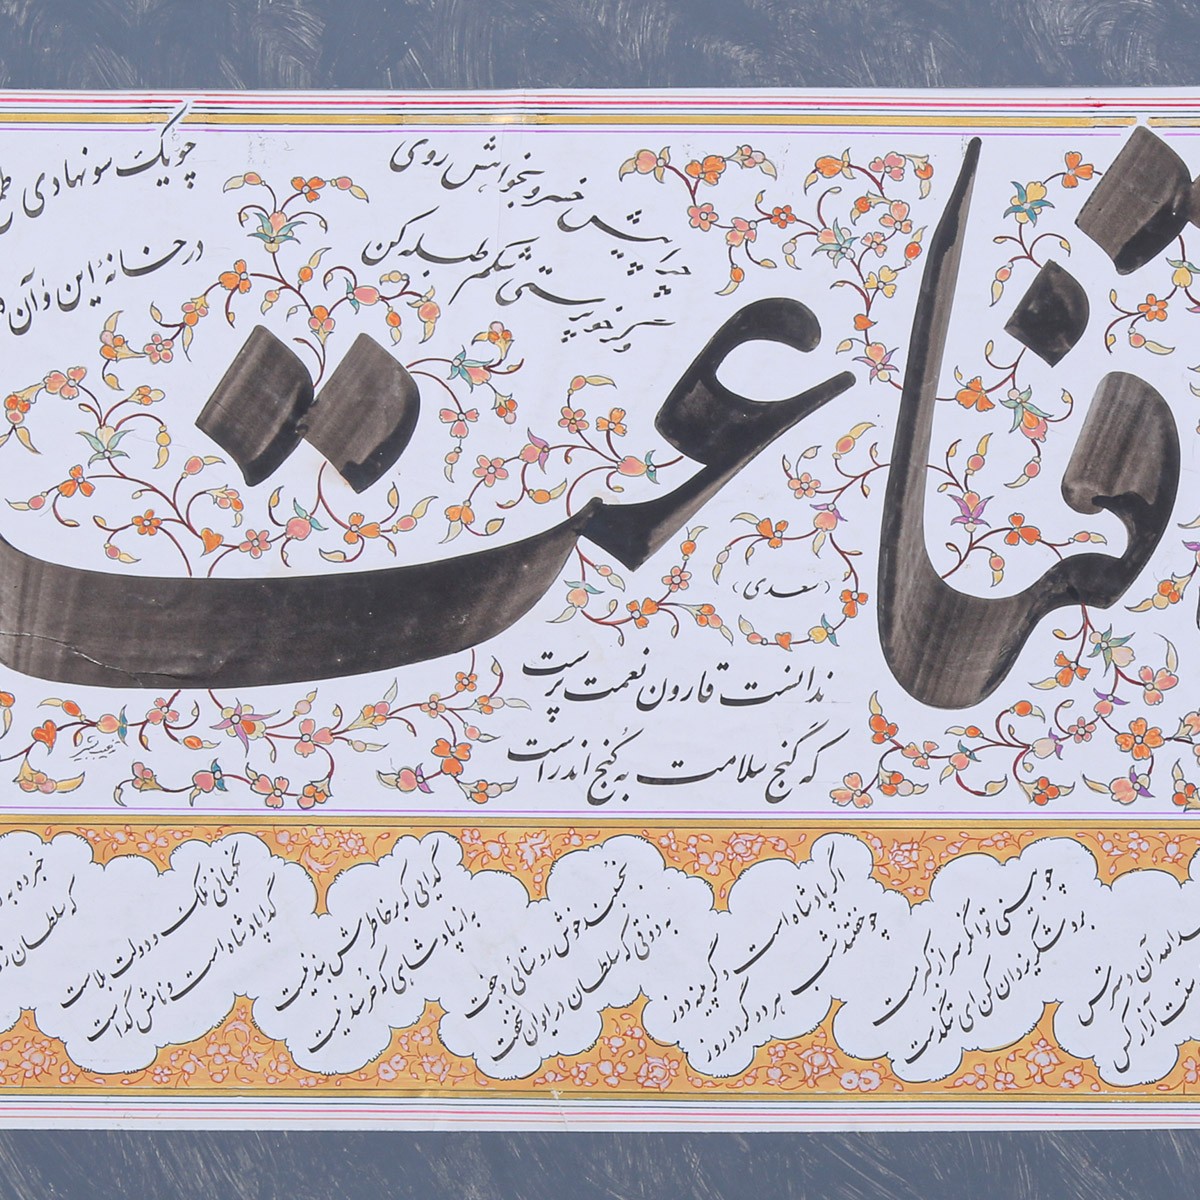 قناعت
چرا پیش خسرو بخواهش روی
چو یک سو نهادی طمع
وگر خودپرستی شکم طبله کن
در خانهٔ این و آن
(سعدی)
ندانست قارون نعمت پرست
که گنج سلامت به کنج اندر است
آن دسترس
آزار کس
چو بینی توانگر سر از کبر مست
برو شکر یزدان کن ای تنگدست
اگر پادشاه است وگر پینه دوز
چو خفتند شب هر دو گردد روز
بخسبند خوش روستائی و جفت
به ذوقی که سلطان در ایوان نخفت
گدایی که بر خاطرش بند نیست
به از پادشاهی که خرسند نیست
نگهبانی ملک و دولت بلاست
گدا پادشاه است و نامش گداست
خبر ده به
که سلطان ز